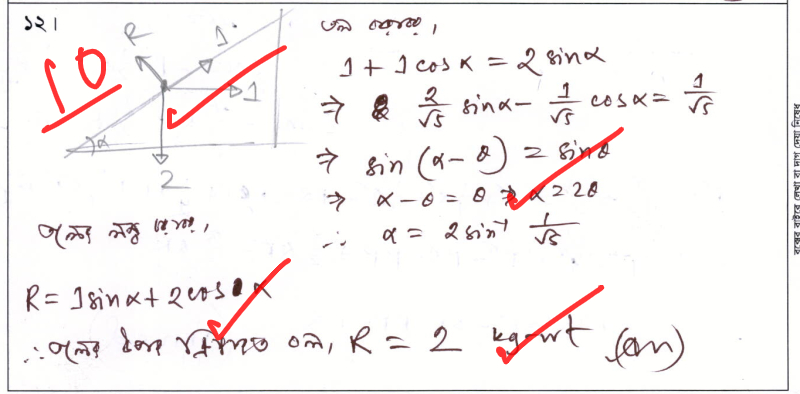 ১২।
10
R
1
1
α
2
তল বরাবর,
1 + 1 cos α = 2 sin α
⇒ 2/√5 sin α − 1/√5 cos α = 1/√5
⇒ sin (α − θ) = sin θ
⇒ α − θ = θ ⇒ α = 2θ
∴ α = 2 sin⁻¹ 1/√5
তলের লম্ব বরাবর,
R = 1 sin α + 2 cos α
∴ তলের উপর বল, R = 2 kg-wt (Ans)
বক্সের বাইরে লেখা বা দাগ দেয়া নিষেধ